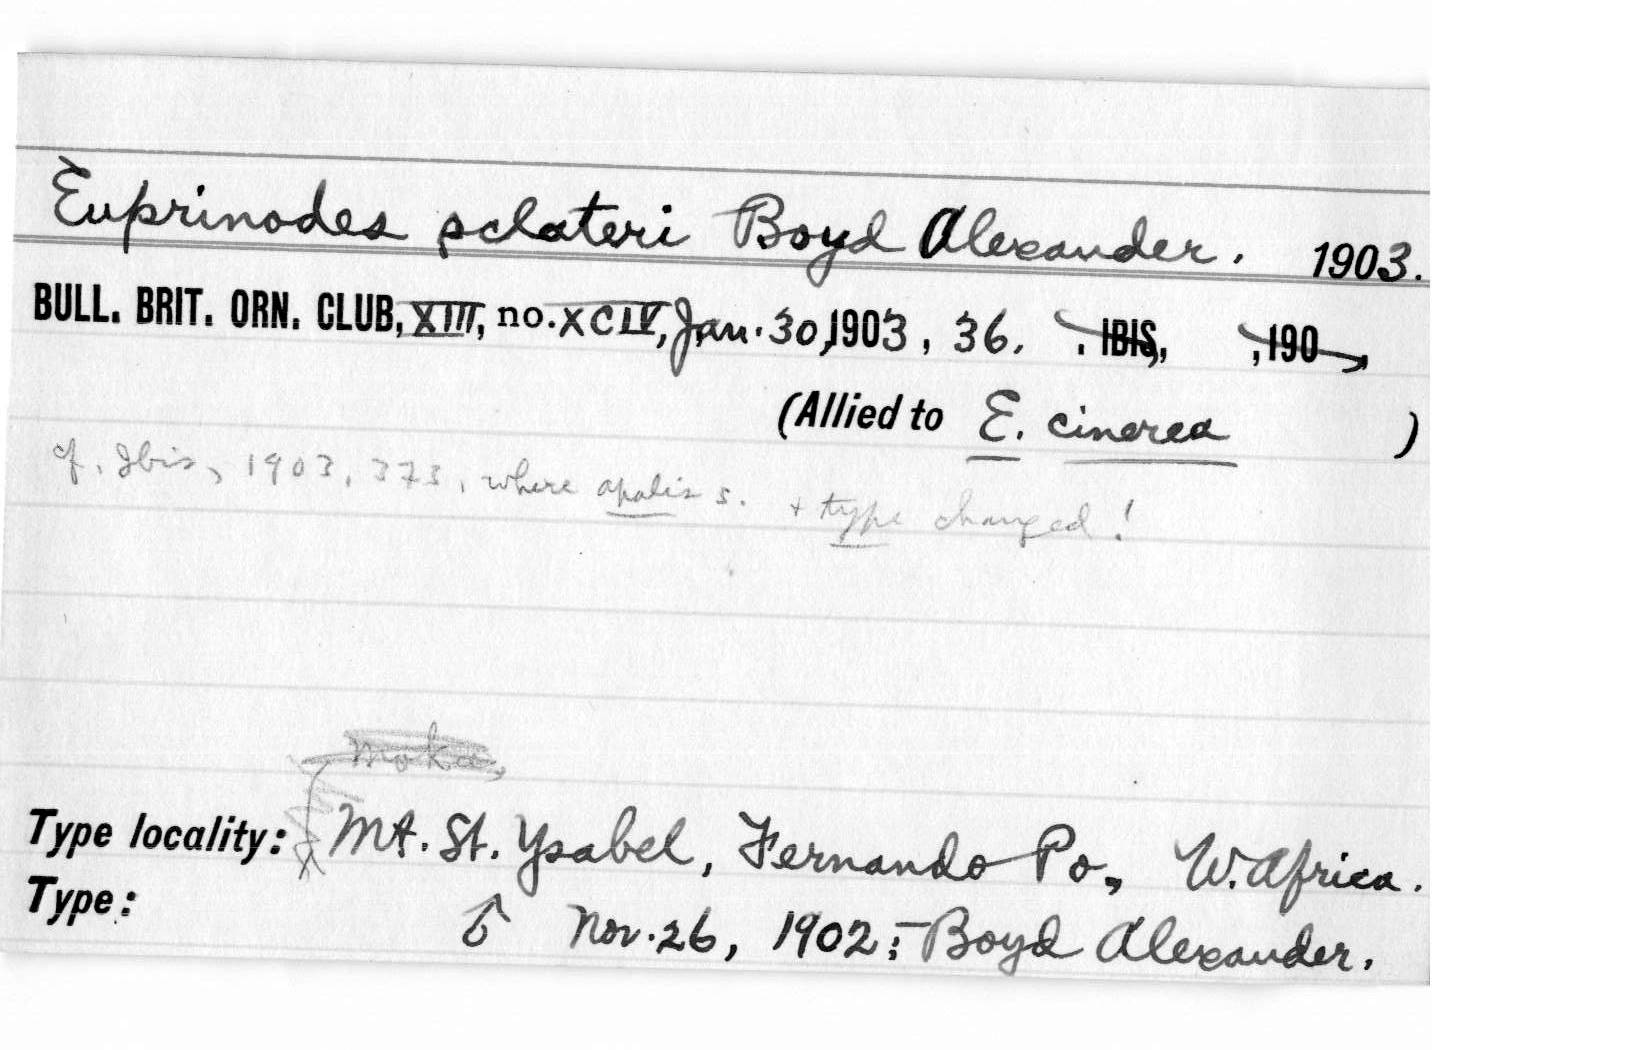 Euprinodes sclateri Boyd Alexander. 1903.
BULL. BRIT. ORN. CLUB, XIII, no. XCIV, Jan. 30, 1903, 36. . IBIS, , 190
(Allied to E. cinerea )
cf. Ibis, 1903, 373, where apalis s. + type changed!
Moka,
Type locality: Mt. St. Ysabel, Fernando Po, W. Africa.
Type: ♂ Nov. 26, 1902; – Boyd Alexander.